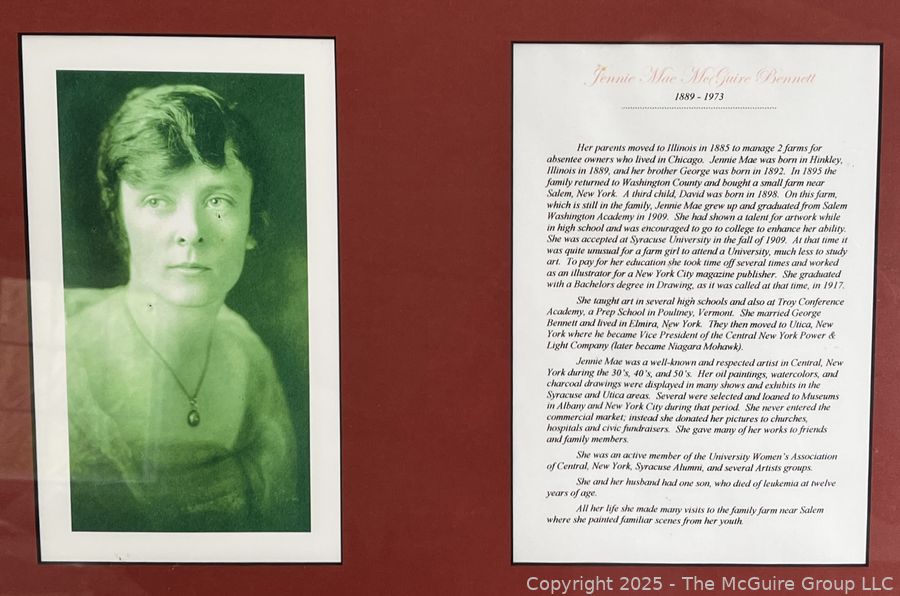 Jennie Mae McGuire Bennett
1889 - 1973
Her parents moved to Illinois in 1885 to manage 2 farms for
absentee owners who lived in Chicago. Jennie Mae was born in Hinkley,
Illinois in 1889, and her brother George was born in 1892. In 1895 the
family returned to Washington County and bought a small farm near
Salem, New York. A third child, David was born in 1898. On this farm,
which is still in the family, Jennie Mae grew up and graduated from Salem
Washington Academy in 1909. She had shown a talent for artwork while
in high school and was encouraged to go to college to enhance her ability.
She was accepted at Syracuse University in the fall of 1909. At that time it
was quite unusual for a farm girl to attend a University, much less to study
art. To pay for her education she took time off several times and worked
as an illustrator for a New York City magazine publisher. She graduated
with a Bachelors degree in Drawing, as it was called at that time, in 1917.
She taught art in several high schools and also at Troy Conference
Academy, a Prep School in Poultney, Vermont. She married George
Bennett and lived in Elmira, New York. They then moved to Utica, New
York where he became Vice President of the Central New York Power &
Light Company (later became Niagara Mohawk).
Jennie Mae was a well-known and respected artist in Central, New
York during the 30's, 40's, and 50's. Her oil paintings, watercolors, and
charcoal drawings were displayed in many shows and exhibits in the
Syracuse and Utica areas. Several were selected and loaned to Museums
in Albany and New York City during that period. She never entered the
commercial market; instead she donated her pictures to churches,
hospitals and civic fundraisers. She gave many of her works to friends
and family members.
She was an active member of the University Women's Association
of Central, New York, Syracuse Alumni, and several Artists groups.
She and her husband had one son, who died of leukemia at twelve
years of age.
All her life she made many visits to the family farm near Salem
where she painted familiar scenes from her youth.
Copyright 2025 - The McGuire Group LLC